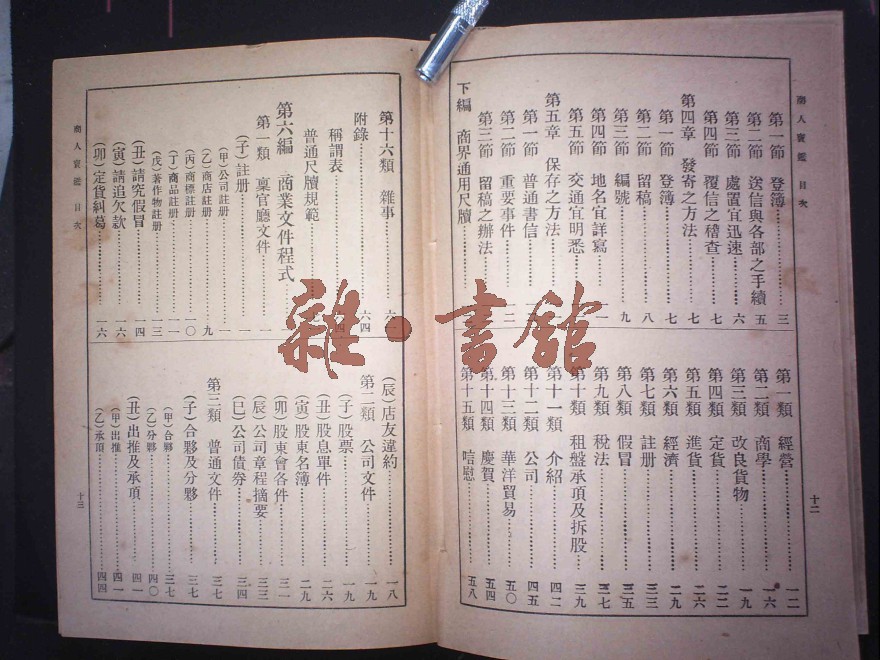 商人寶鑑 目次
第一節 登簿 三
第二節 送信與各部之手續 五
第三節 處置宜迅速 六
第四節 覆信之稽查 七
第四章 發寄之方法 七
第一節 登簿 七
第二節 留稿 八
第三節 編號 九
第四節 地名宜詳寫
第五節 交通宜明悉
第五章 保存之方法
第一節 普通書信
第二節 重要事件
第三節 留稿之辦法
下編 商界通用尺牘
第一類 經營 一二
第二類 商學 一六
第三類 改良貨物 一九
第四類 定貨 二二
第五類 進貨 二六
第六類 經濟 二九
第七類 註册 三三
第八類 假冒 三五
第九類 稅法 三七
第十類 租盤承項及拆股 三九
第十一類 介紹 四二
第十二類 公司 四五
第十三類 華洋貿易 五〇
第十四類 慶賀 五四
第十五類 唁慰 五八
十二
第十六類 雜事
附錄 六四
稱謂表
普通尺牘規範
第六編 商業文件程式
第一類 稟官廳文件 一
(子)註册 一
(甲)公司註册 一
(乙)商店註册 九
(丙)商標註册 一〇
(丁)商品註册 一一
(戊)著作物註册 一三
(丑)請究假冒 一四
(寅)請追欠款 一六
(卯)定貨糾葛 一六
商人寶鑑 目次
(辰)店友違約 一八
第二類 公司文件 一九
(子)股票 一九
(丑)股息單件 二六
(寅)股東名簿 二九
(卯)股東會各件 三一
(辰)公司章程摘要 三三
(巳)公司債券 三四
第三類 普通文件 三七
(子)合夥及分夥 三七
(甲)合夥 三七
(乙)分夥 四〇
(丑)出推及承項 四一
(甲)出推 四一
(乙)承項 四四
十三
雜·書館